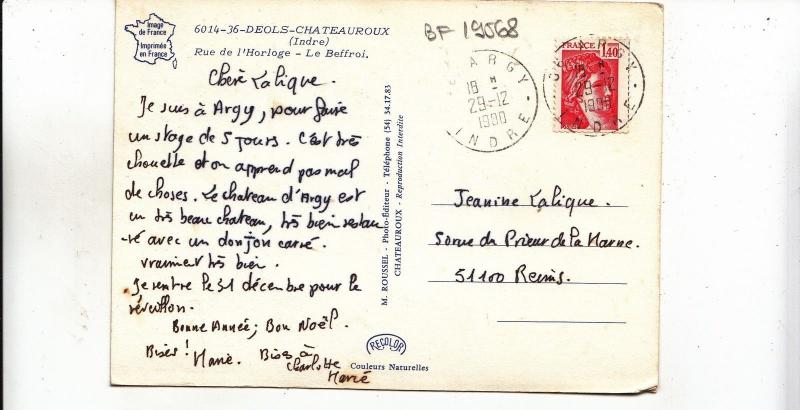 Image
de France
Imprimée
en France
6014-36-DEOLS-CHATEAUROUX
(Indre)
Rue de l'Horloge - Le Beffroi.
BF 19068
Chère Lalique.
Je suis à Argy, pour faire
un stage de 5 jours. C'est très
chouette et on apprend pas mal
de choses. Le chateau d'Argy est
un très beau chateau, très bien restau
-ré avec un donjon carré.
vraiment très bien.
Je rentre le 31 décembre pour le
réveillon.
Bonne Année; Bon Noël.
Bises! Marie. Bises à
Charlotte
Marie
M. ROUSSEL - Photo-Editeur - Téléphone (54) 34.17.83
CHATEAUROUX - Reproduction Interdite
RECOLOR
Couleurs Naturelles
36 ARGY
18 H
29-12
1980
INDRE
FRANCE
1,40
36 ARGY
18 H
29-12
1980
INDRE
Jeanine Lalique.
du Prieur de la Marne.
51100 Reims.